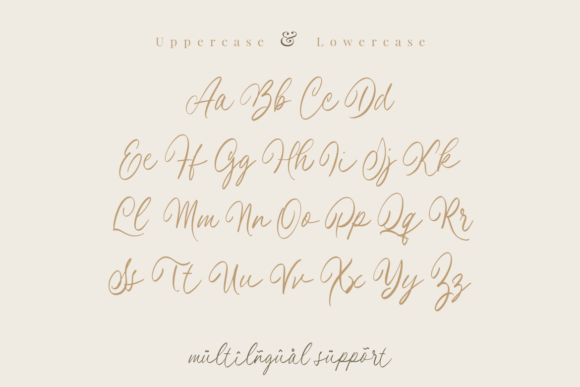 Uppercase & Lowercase
Aa Bb Cc Dd
Ee Ff Gg Hh Ii Jj Kk
Ll Mm Nn Oo Pp Qq Rr
Ss Tt Uu Vv Xx Yy Zz
mültîlñgûål süppõrt